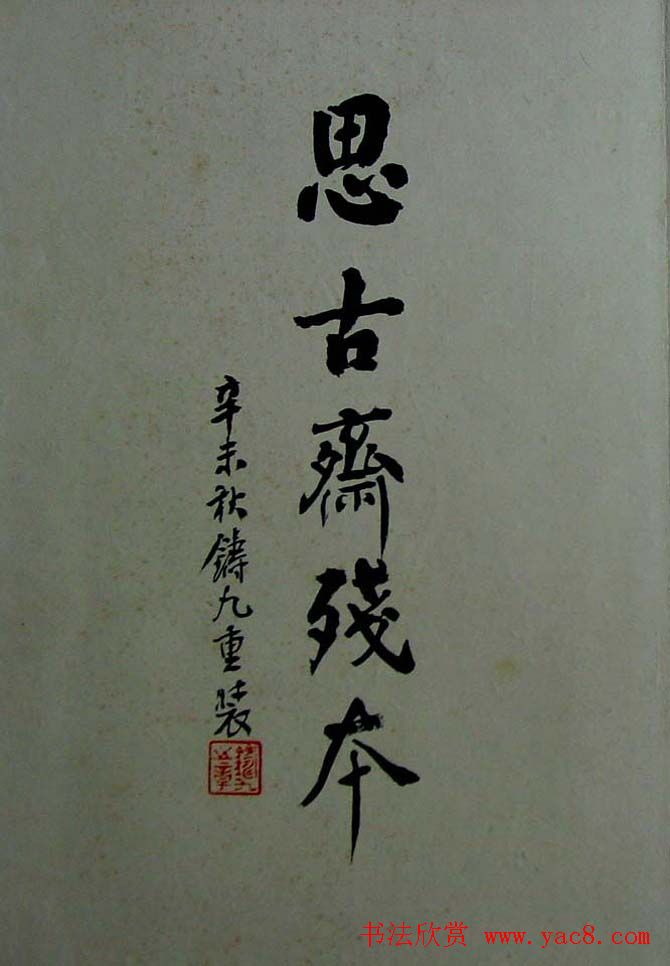 思古齋殘本
辛未秋鑄九重裝
鑄九之章
书法欣赏 www.yac8.com